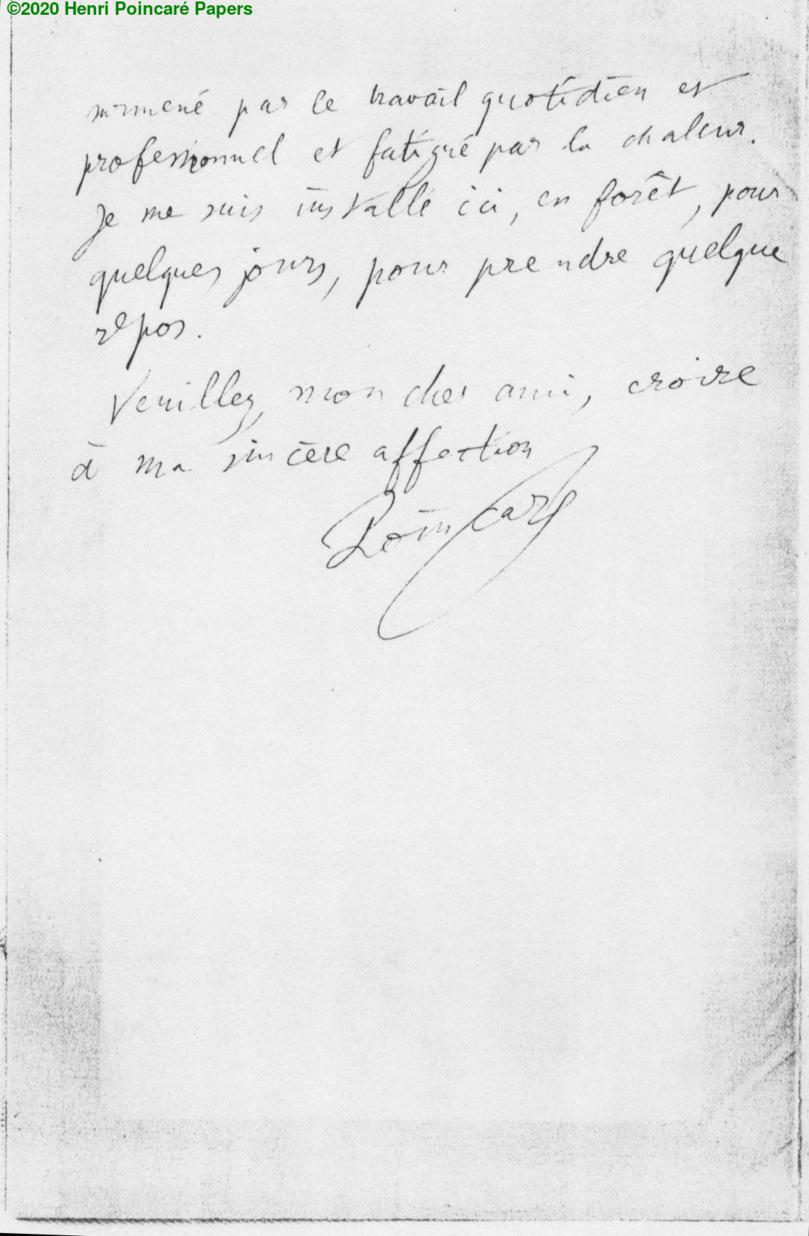 ©2020 Henri Poincaré Papers
surmené par le travail quotidien et
professionnel et fatigué par la chaleur.
Je me suis installé ici, en forêt, pour
quelques jours, pour prendre quelque
repos.
Veuillez, mon cher ami, croire
à ma sincère affection
Poincaré